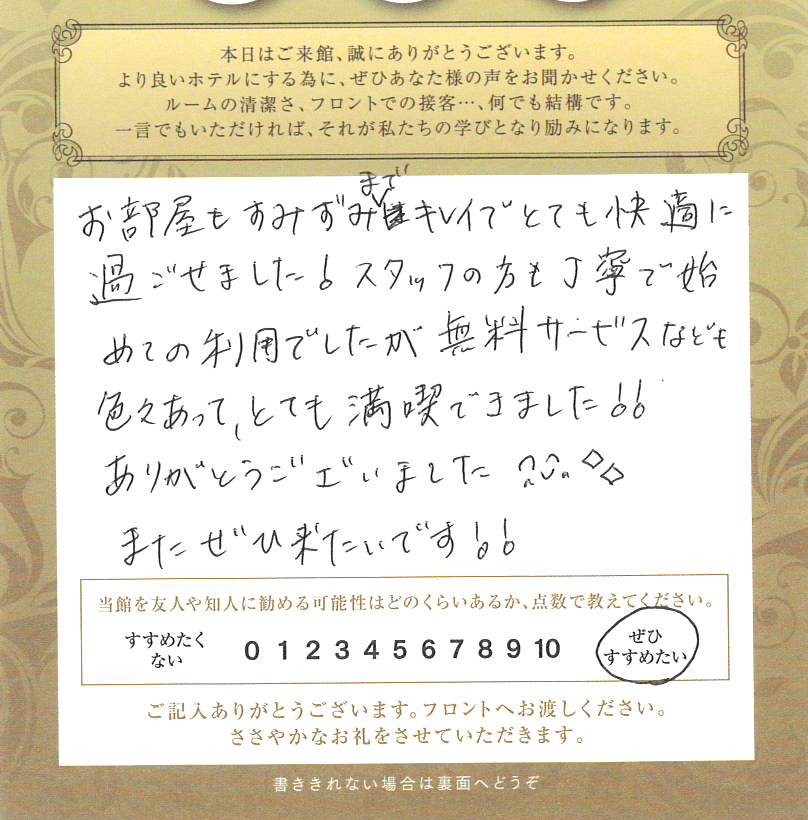 本日はご来館、誠にありがとうございます。
より良いホテルにする為に、ぜひあなた様の声をお聞かせください。
ルームの清潔さ、フロントでの接客…、何でも結構です。
一言でもいただければ、それが私たちの学びとなり励みになります。
お部屋もすみずみまでキレイでとても快適に
過ごせました! スタッフの方も丁寧で始
めての利用でしたが無料サービスなども
色々あって、とても満喫できました!!
ありがとうございました
またぜひ来たいです!!
当館を友人や知人に勧める可能性はどのくらいあるか、点数で教えてください。
すすめたくない 0 1 2 3 4 5 6 7 8 9 10 ぜひすすめたい
ご記入ありがとうございます。フロントへお渡しください。
ささやかなお礼をさせていただきます。
書ききれない場合は裏面へどうぞ